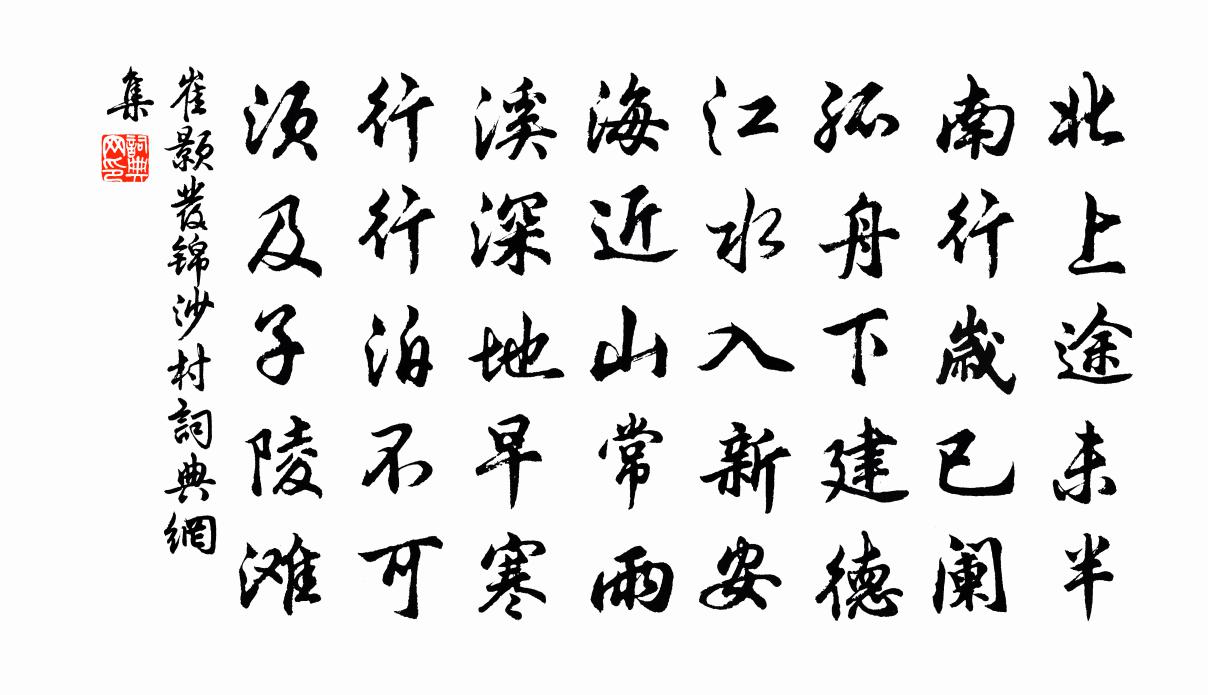 北上途未半
南行歲已阑
孤舟下建德
江水入新安
海近山常雨
溪深地早寒
行行泊不可
须及子陵滩
崔颢發锦沙村詞典網
集
詞典网印